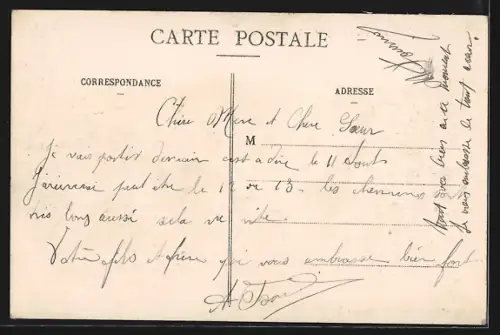 CARTE POSTALE
CORRESPONDANCE
ADRESSE
M
Chère Mère et Chère Sœur
Je vais partir demain c'est a dire le 11 Aout
J'arriverai peut être le 12 ou 13. les chemins sont
très long aussi cela va vite.
Votre fils et frère qui vous embrasse bien fort
vous bien en ce moment
Je vous embrasse de tout cœur.